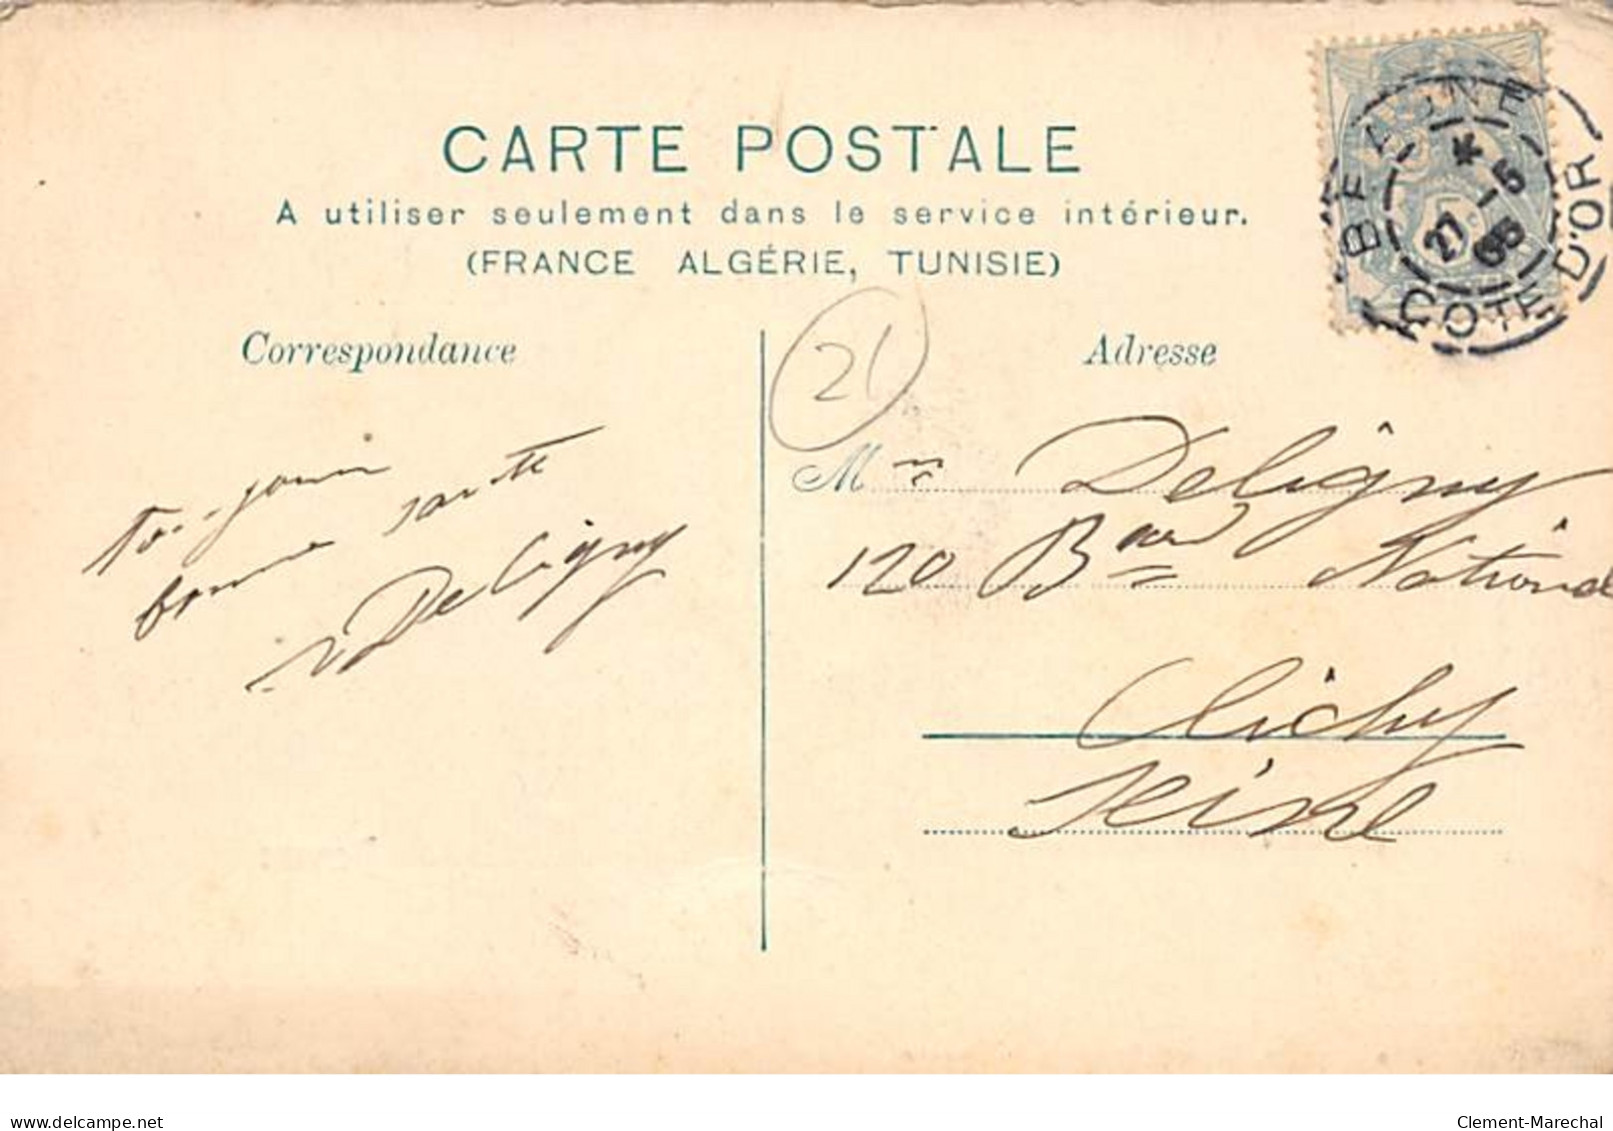 CARTE POSTALE
A utiliser seulement dans le service intérieur.
(FRANCE ALGÉRIE, TUNISIE)
BEAUNE
* 27 -5 05
COTE D'OR
5c
Correspondance
21
Adresse
toujours
bonne santé
Deligny
Mme Deligny
120 Bard National
Clichy
Seine
delcampe.net
Clement-Marechal